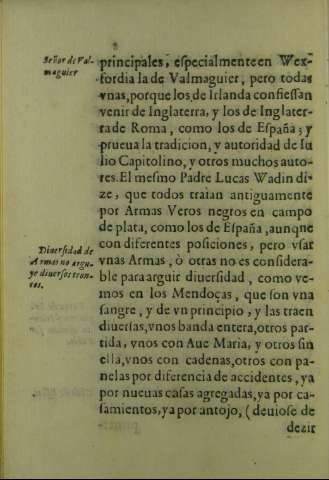 Señor de Val-
maguier
principales, especialmente en Wex-
fordia la de Valmaguier, pero todas
vnas, porque los de Irlanda confiessan
venir de Inglaterra, y los de Inglater-
ra de Roma, como los de España; y
prueua la tradicion, y autoridad de Iu
lio Capitolino, y otros muchos auto-
res. El mesmo Padre Lucas Wadin di-
ze, que todos traìan antiguamente
por Armas Veros negros en campo
de plata, como los de España, aunque
con diferentes posiciones, pero vsar
vnas Armas, ò otras no es considera-
ble para arguir diuersidad, como ve-
mos en los Mendoças, que son vna
sangre, y de vn principio, y las traen
diuersas, vnos banda entera, otros par-
tida, vnos con Aue Maria, y otros sin
ella, vnos con cadenas, otros con pa-
nelas por diferencia de accidentes, ya
por nueuas casas agregadas, ya por ca-
samientos, ya por antojo, (deuiose de
dezir
Diuersidad de
Armas no argu-
ye diuersos tron-
cos.